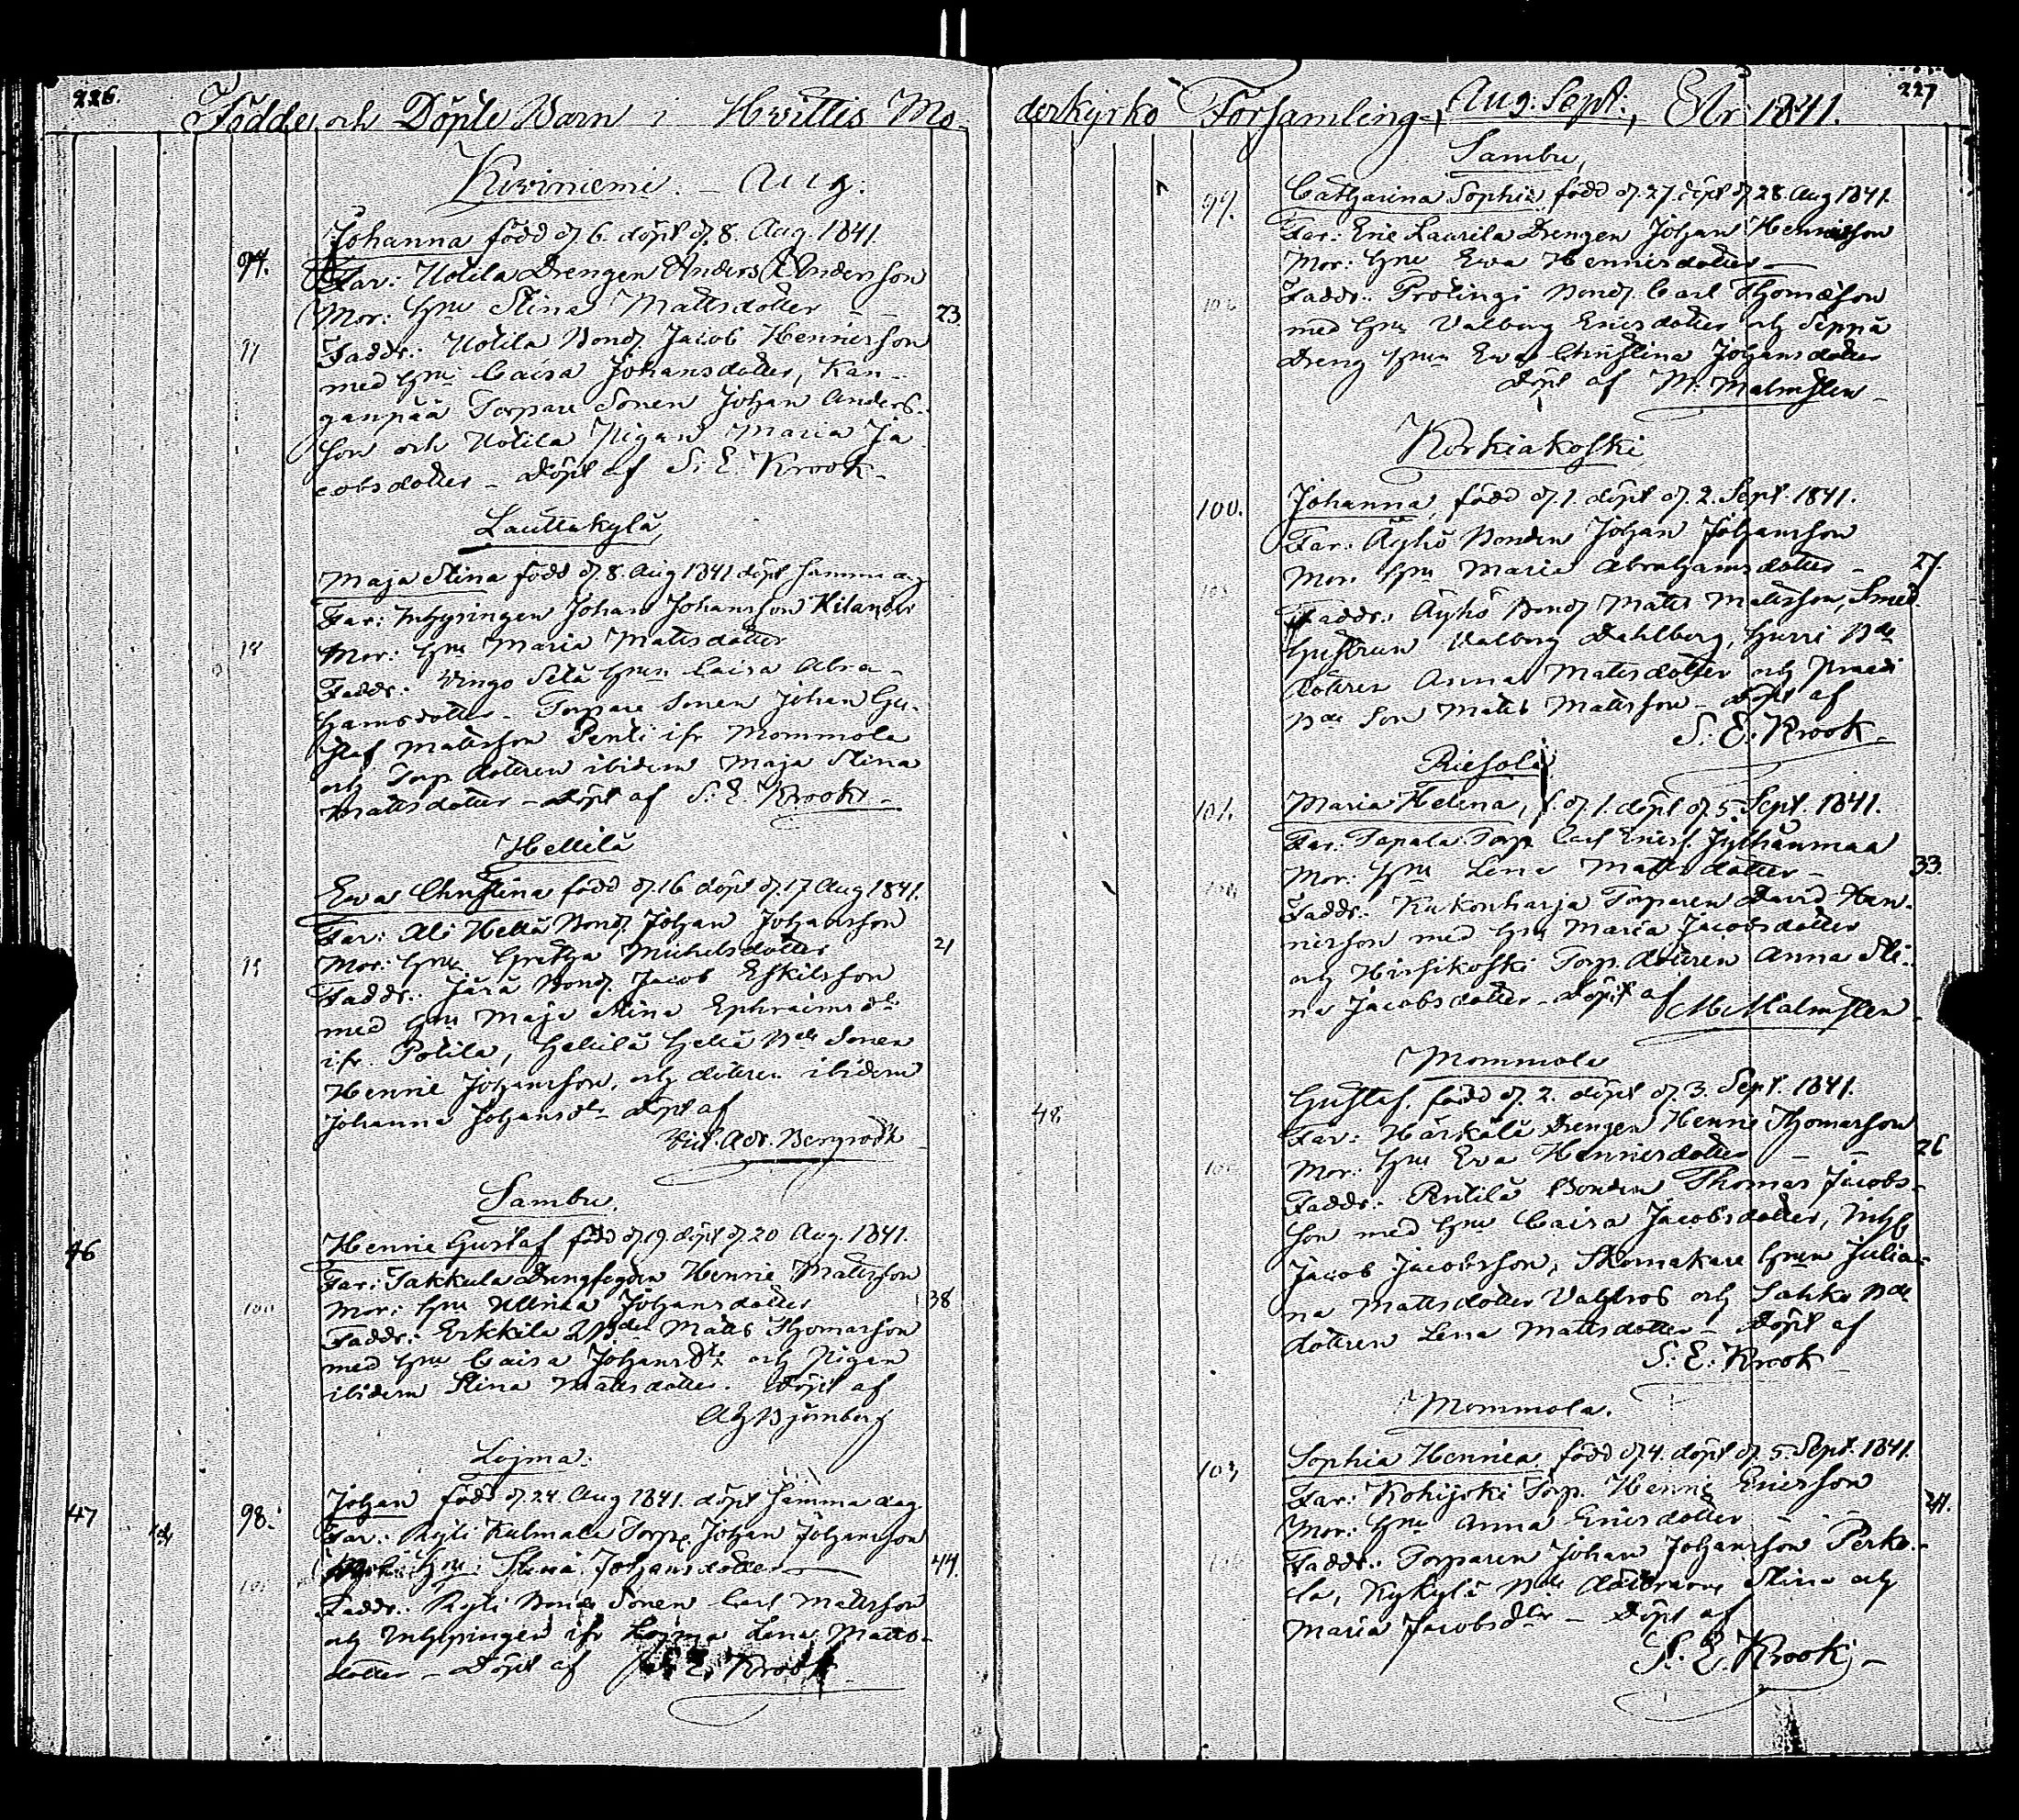 226.
Födde och Döpte Barn i Hvittis Mo-
Kiviniemi. - Aug.
94.
Johanna född d. 6. döpt d. 8. Aug. 1841.
Far: Uotila Drengen Anders Andersson
Mor: hu Stina Mattsdotter
23.
Faddr: Uotila Bond. Jacob Henricsson
med hu Caisa Johansdotter, Kan-
ganpää Torpare Sonen Johan Anders-
son och Uotila Pigan Maria Ja-
cobsdotter - Döpt af S. E. Krook -
Lauttakylä
Maja Stina född d. 8. Aug 1841 döpt samma dag
Far: Inhysingen Johan Johansson Kilander
Mor: hu Maria Mattsdotter
Faddr: Caisa Abra-
hamsdotter - Torpare Sonen Johan Gu-
staf Mattsson Penti ifr Mommola
och Torp dottren ibidem Maja Stina
Mattsdotter - Döpt af S. E. Krook -
Hellilä
Ewa Christina född d. 16 döpt d. 17 Aug 1841.
Far: Ali Hellä Bond. Johan Johansson
Mor: hu Gretha Michelsdotter
21
Faddr: Jara Bond. Jacob Eskilsson
med hu Maja Stina Ephraimsdr
ifr Potila, Hellilä Hellä Bde Sonen
Henric Johansson, och dottren ibidem
Johanna Johansdr - Döpt af
Vid. Adr. Bergroth
Sambu.
46
Henric Gustaf född d. 19. döpt d. 20 Aug. 1841.
Far: Sakkula Drengfogden Henric Mattsson
Mor: hu Ulrica Johansdotter
38
Faddr: Erkkilä Matts Thomasson
med hu Caisa Johansdr och Pigan
ibidem Stina Mattsdotter. Döpt af
Björnberg
Lojma.
47
98.
Johan född d. 24. Aug 1841. döpt samma dag
Far: Ryti Kulmala Torp. Johan Johansson
hu Stina Johansdotter
44.
Faddr: Ryti Bonde Sonen Carl Mattsson
och Inhysingen ifr Lojma Lena Matts-
dotter - Döpt af S. E. Krook
227
derkyrko Församling, Aug. Sept., År 1841.
Sambu,
99.
Catharina Sophia född d. 27. döpt d. 28. Aug 1841.
Far: Eric Laurila Drengen Johan Henricsson
Mor: hu Ewa Henricsdotter -
Faddr: Prolingi Bond. Carl Thomæson
med hu Valborg Ericsdotter och Seppä
Dreng hun Ewa Christina Johansdotter
Döpt af M. Malmsten -
Korkiakoski
100.
Johanna, född d. 1. döpt d. 2. Sept. 1841.
Far: Äyhö Bonden Johan Johansson
Mor: hu Maria Abrahamsdotter -
27
Faddr: Äyhö Bond. Matts Mattsson, Smed
hustrun Valborg Dahlberg, Hurri Bde
dottren Anna Mattsdotter och
Bde Son Matts Mattsson - Döpt af
S. E. Krook -
Riesola
101.
Maria Helena, f. d. 1. döpt d. 5. Sept. 1841.
Far: Tapala Torp. Carl Erics. Jylhänmaa
Mor: hu Lena Mattsdotter -
33.
Faddr: Kukonharja Torparen David Hen-
ricsson med hu Maria Jacobsdotter
och Hirsikoski Torp. dottren Anna Sti-
na Jacobsdotter - Döpt af M. Malmsten
Mommola
48
Gustaf. född d. 2. döpt d. 3. Sept. 1841.
Far: Härkälä Drengen Henric Thomasson
Mor: hu Ewa Henricsdotter
26
Faddr: Rutilä Bonden Thomas Jacobs-
son med hu Caisa Jacobsdotter, Inhys
Jacob Jacobsson, Skomakare hun Julia-
na Mattsdotter Vahlros och Sahko Bde
dottren Lena Mattsdotter - Döpt af
S. E. Krook -
Mommola.
103
Sophia Henrica född d. 4. döpt d. 5. Sept. 1841.
Far: Kohijoki Torp. Henric Ericsson
Mor: hu Anna Ericsdotter
41.
Faddr: Torparen Johan Johansson Perko-
la, Kykylä Bde döttrarne Stina och
Maria Jacobsdr - Döpt af
S. E. Krook -